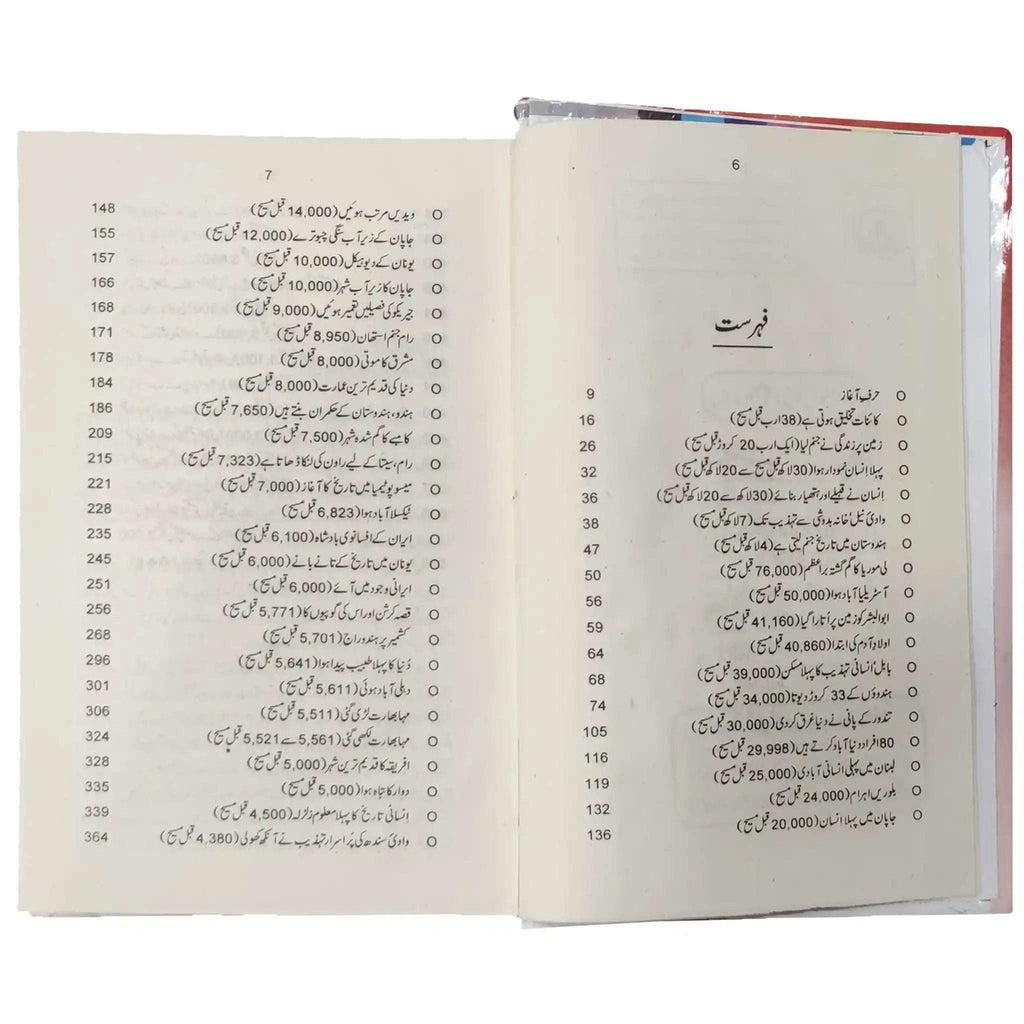 6
فہرست
حرفِ آغاز 9
کائنات تخلیق ہوتی ہے (38 ارب قبل مسیح) 16
زمین پر زندگی نے جنم لیا (ایک ارب 20 کروڑ قبل مسیح) 26
پہلا انسان نمودار ہوا (30 لاکھ قبل مسیح سے 20 لاکھ قبل مسیح) 32
انسان نے قبیلے اور ہتھیار بنائے (30 لاکھ سے 20 لاکھ قبل مسیح) 36
وادیٔ نیل، خانہ بدوشی سے تہذیب تک (7 لاکھ قبل مسیح) 38
ہندوستان میں تاریخ جنم لیتی ہے (4 لاکھ قبل مسیح) 47
لی موریا کا گم گشتہ براعظم (76,000 قبل مسیح) 50
آسٹریلیا آباد ہوا (50,000 قبل مسیح) 56
ابوالبشر کو زمین پر اُتارا گیا (41,160 قبل مسیح) 59
اولادِ آدم کی ابتدا (40,860 قبل مسیح) 64
بابل، اُنسانی تہذیب کا پہلا مسکن (39,000 قبل مسیح) 68
ہندوؤں کے 33 کروڑ دیوتا (34,000 قبل مسیح) 74
تندور کے پانی نے دنیا غرق کر دی (30,000 قبل مسیح) 105
80 افراد دنیا آباد کرتے ہیں (29,998 قبل مسیح) 116
لبنان میں پہلی انسانی آبادی (25,000 قبل مسیح) 119
بلوریں اہرام (24,000 قبل مسیح) 132
جاپان میں پہلا انسان (20,000 قبل مسیح) 136
7
ویدیں مرتب ہوئیں (14,000 قبل مسیح) 148
جاپان کے زیرِ آب سنگی چبوترے (12,000 قبل مسیح) 155
یونان کے دیوہیکل (10,000 قبل مسیح) 157
جاپان کا زیرِ آب شہر (10,000 قبل مسیح) 166
جیریکو کی فصیلیں تعمیر ہوئیں (9,000 قبل مسیح) 168
رام جنم استھان (8,950 قبل مسیح) 171
مشرق کا موتی (8,000 قبل مسیح) 178
دنیا کی قدیم ترین عمارت (8,000 قبل مسیح) 184
ہندو، ہندوستان کے حکمران بنتے ہیں (7,650 قبل مسیح) 186
کامبے کا گم شدہ شہر (7,500 قبل مسیح) 209
رام، سیتا کے لیے راون کی لنکا ڈھاتا ہے (7,323 قبل مسیح) 215
میسوپوٹیمیا میں تاریخ کا آغاز (7,000 قبل مسیح) 221
ٹیکسلا آباد ہوا (6,823 قبل مسیح) 228
ایران کے افسانوی بادشاہ (6,100 قبل مسیح) 235
یونان میں تاریخ کے تانے بانے (6,000 قبل مسیح) 245
ایرانی وجود میں آئے (6,000 قبل مسیح) 251
قصہ کرشن اور اس کی گوپیوں کا (5,771 قبل مسیح) 256
کشمیر پر ہندو راج (5,701 قبل مسیح) 268
دُنیا کا پہلا طبیب پیدا ہوا (5,641 قبل مسیح) 296
دہلی آباد ہوئی (5,611 قبل مسیح) 301
مہابھارت لڑی گئی (5,511 قبل مسیح) 306
مہابھارت لکھی گئی (5,561 سے 5,521 قبل مسیح) 324
افریقہ کا قدیم ترین شہر (5,000 قبل مسیح) 328
دوارکا تباہ ہوا (5,000 قبل مسیح) 335
انسانی تاریخ کا پہلا معلوم زلزلہ (4,500 قبل مسیح) 339
وادیٔ سندھ کی پُراسرار تہذیب نے آنکھ کھولی (4,380 قبل مسیح) 364